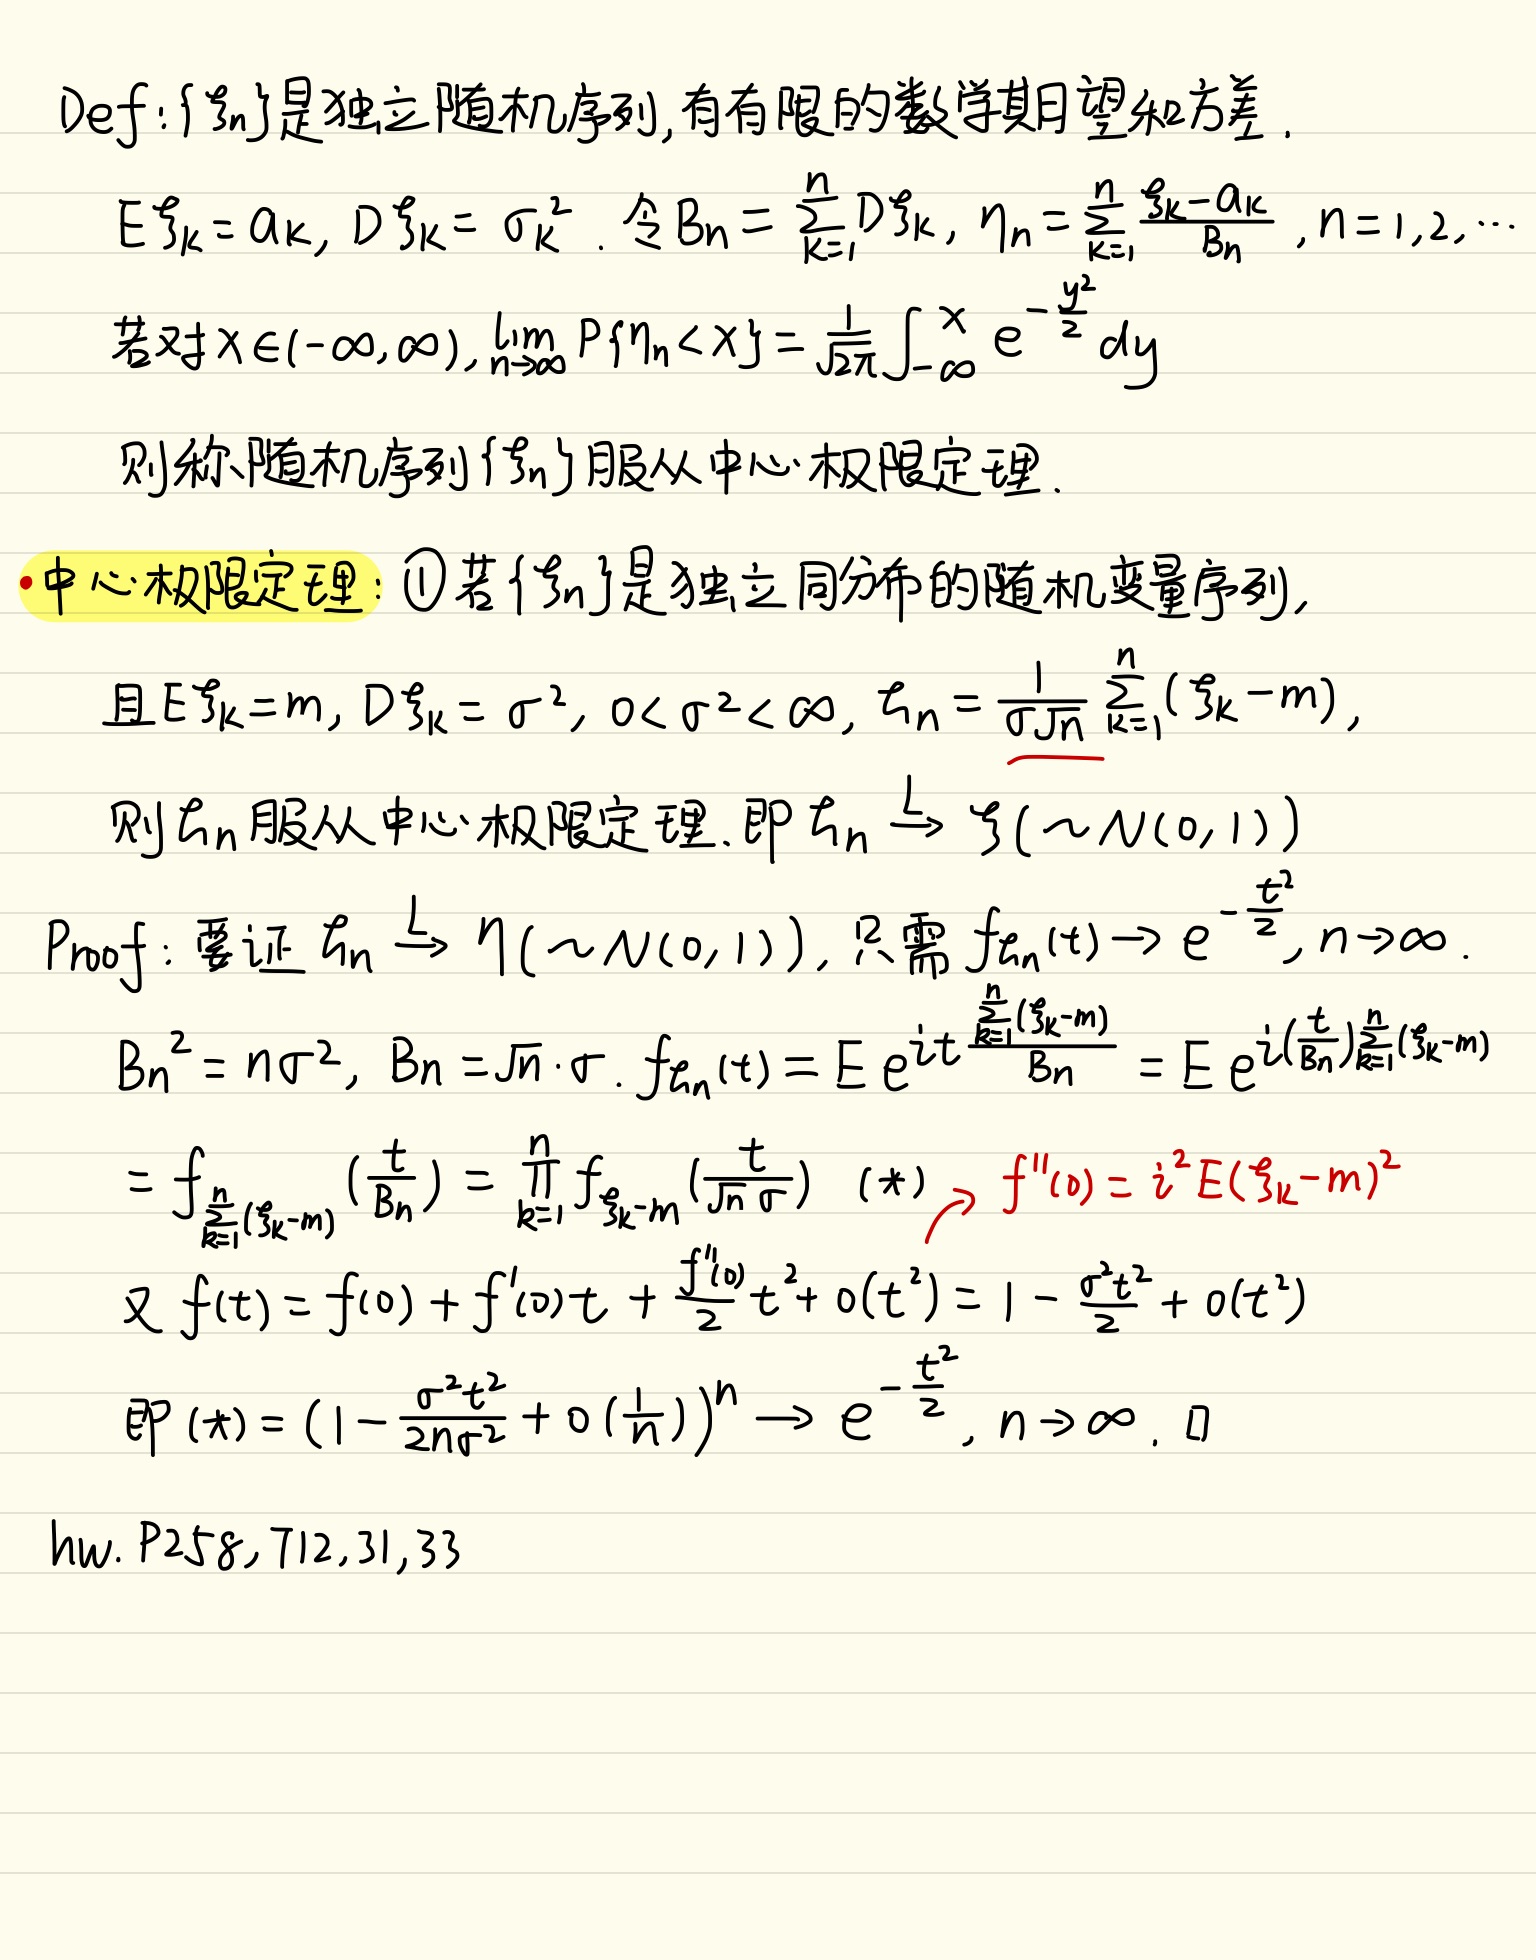 Def: {ξn}是独立随机序列,有有限的数学期望和方差.
Eξk = ak, Dξk = σk². 令Bn = ∑_{k=1}^{n} Dξk, ηn = ∑_{k=1}^{n} (ξk - ak)/Bn, n = 1, 2, ⋯
若对x∈(-∞,∞), lim_{n→∞} P{ηn < x} = 1/√(2π) ∫_{-∞}^{x} e^{-y²/2} dy
则称随机序列{ξn}服从中心极限定理.
• 中心极限定理: ① 若{ξn}是独立同分布的随机变量序列,
且Eξk = m, Dξk = σ², 0 < σ² < ∞, ζn = 1/(σ√n) ∑_{k=1}^{n} (ξk - m),
则ζn服从中心极限定理. 即ζn →^L ξ(~N(0,1))
Proof: 要证 ζn →^L η(~N(0,1)), 只需 f_{ζn}(t) → e^{-t²/2}, n→∞.
Bn² = nσ², Bn = √n·σ. f_{ζn}(t) = E e^{it ∑_{k=1}^{n}(ξk-m)/Bn} = E e^{i(t/Bn)∑_{k=1}^{n}(ξk-m)}
= f_{∑_{k=1}^{n}(ξk-m)}(t/Bn) = ∏_{k=1}^{n} f_{ξk-m}(t/(√n σ)) (*) f''(0) = i²E(ξk-m)²
又 f(t) = f(0) + f'(0)t + f''(0)/2 t² + o(t²) = 1 - σ²t²/2 + o(t²)
即 (*) = (1 - σ²t²/(2nσ²) + o(1/n))^n → e^{-t²/2}, n→∞. □
hw. P258, T12, 31, 33